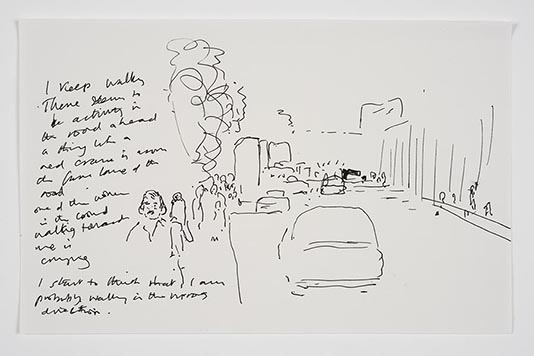 I keep walking
There seem to
be activity in
the road ahead
a thing like a
red crane is across
the four lane of the
road
one of the women
in the crowd
walking towards
me is
crying
I start to think that I am
probably walking in the wrong
direction.